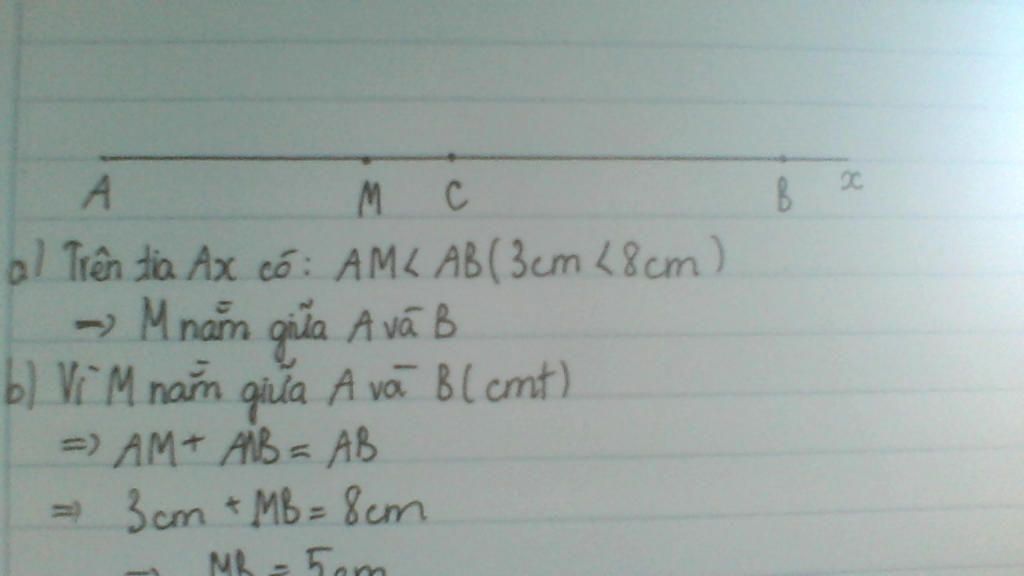 A M C B x
a) Trên tia Ax có: AM < AB (3cm < 8cm)
→ M nằm giữa A và B
b) Vì M nằm giữa A và B (cmt)
=> AM + MB = AB
=> 3cm + MB = 8cm
=> MB = 5cm